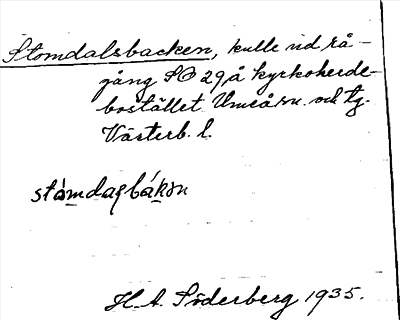 Stomdalsbacken, kulle vid rå-
gång SO 29 å kyrkoherde-
bostället. Umeå sn. och tg.
Västerb. l.
stòmdagbákɷn
H. A. Söderberg 1935.